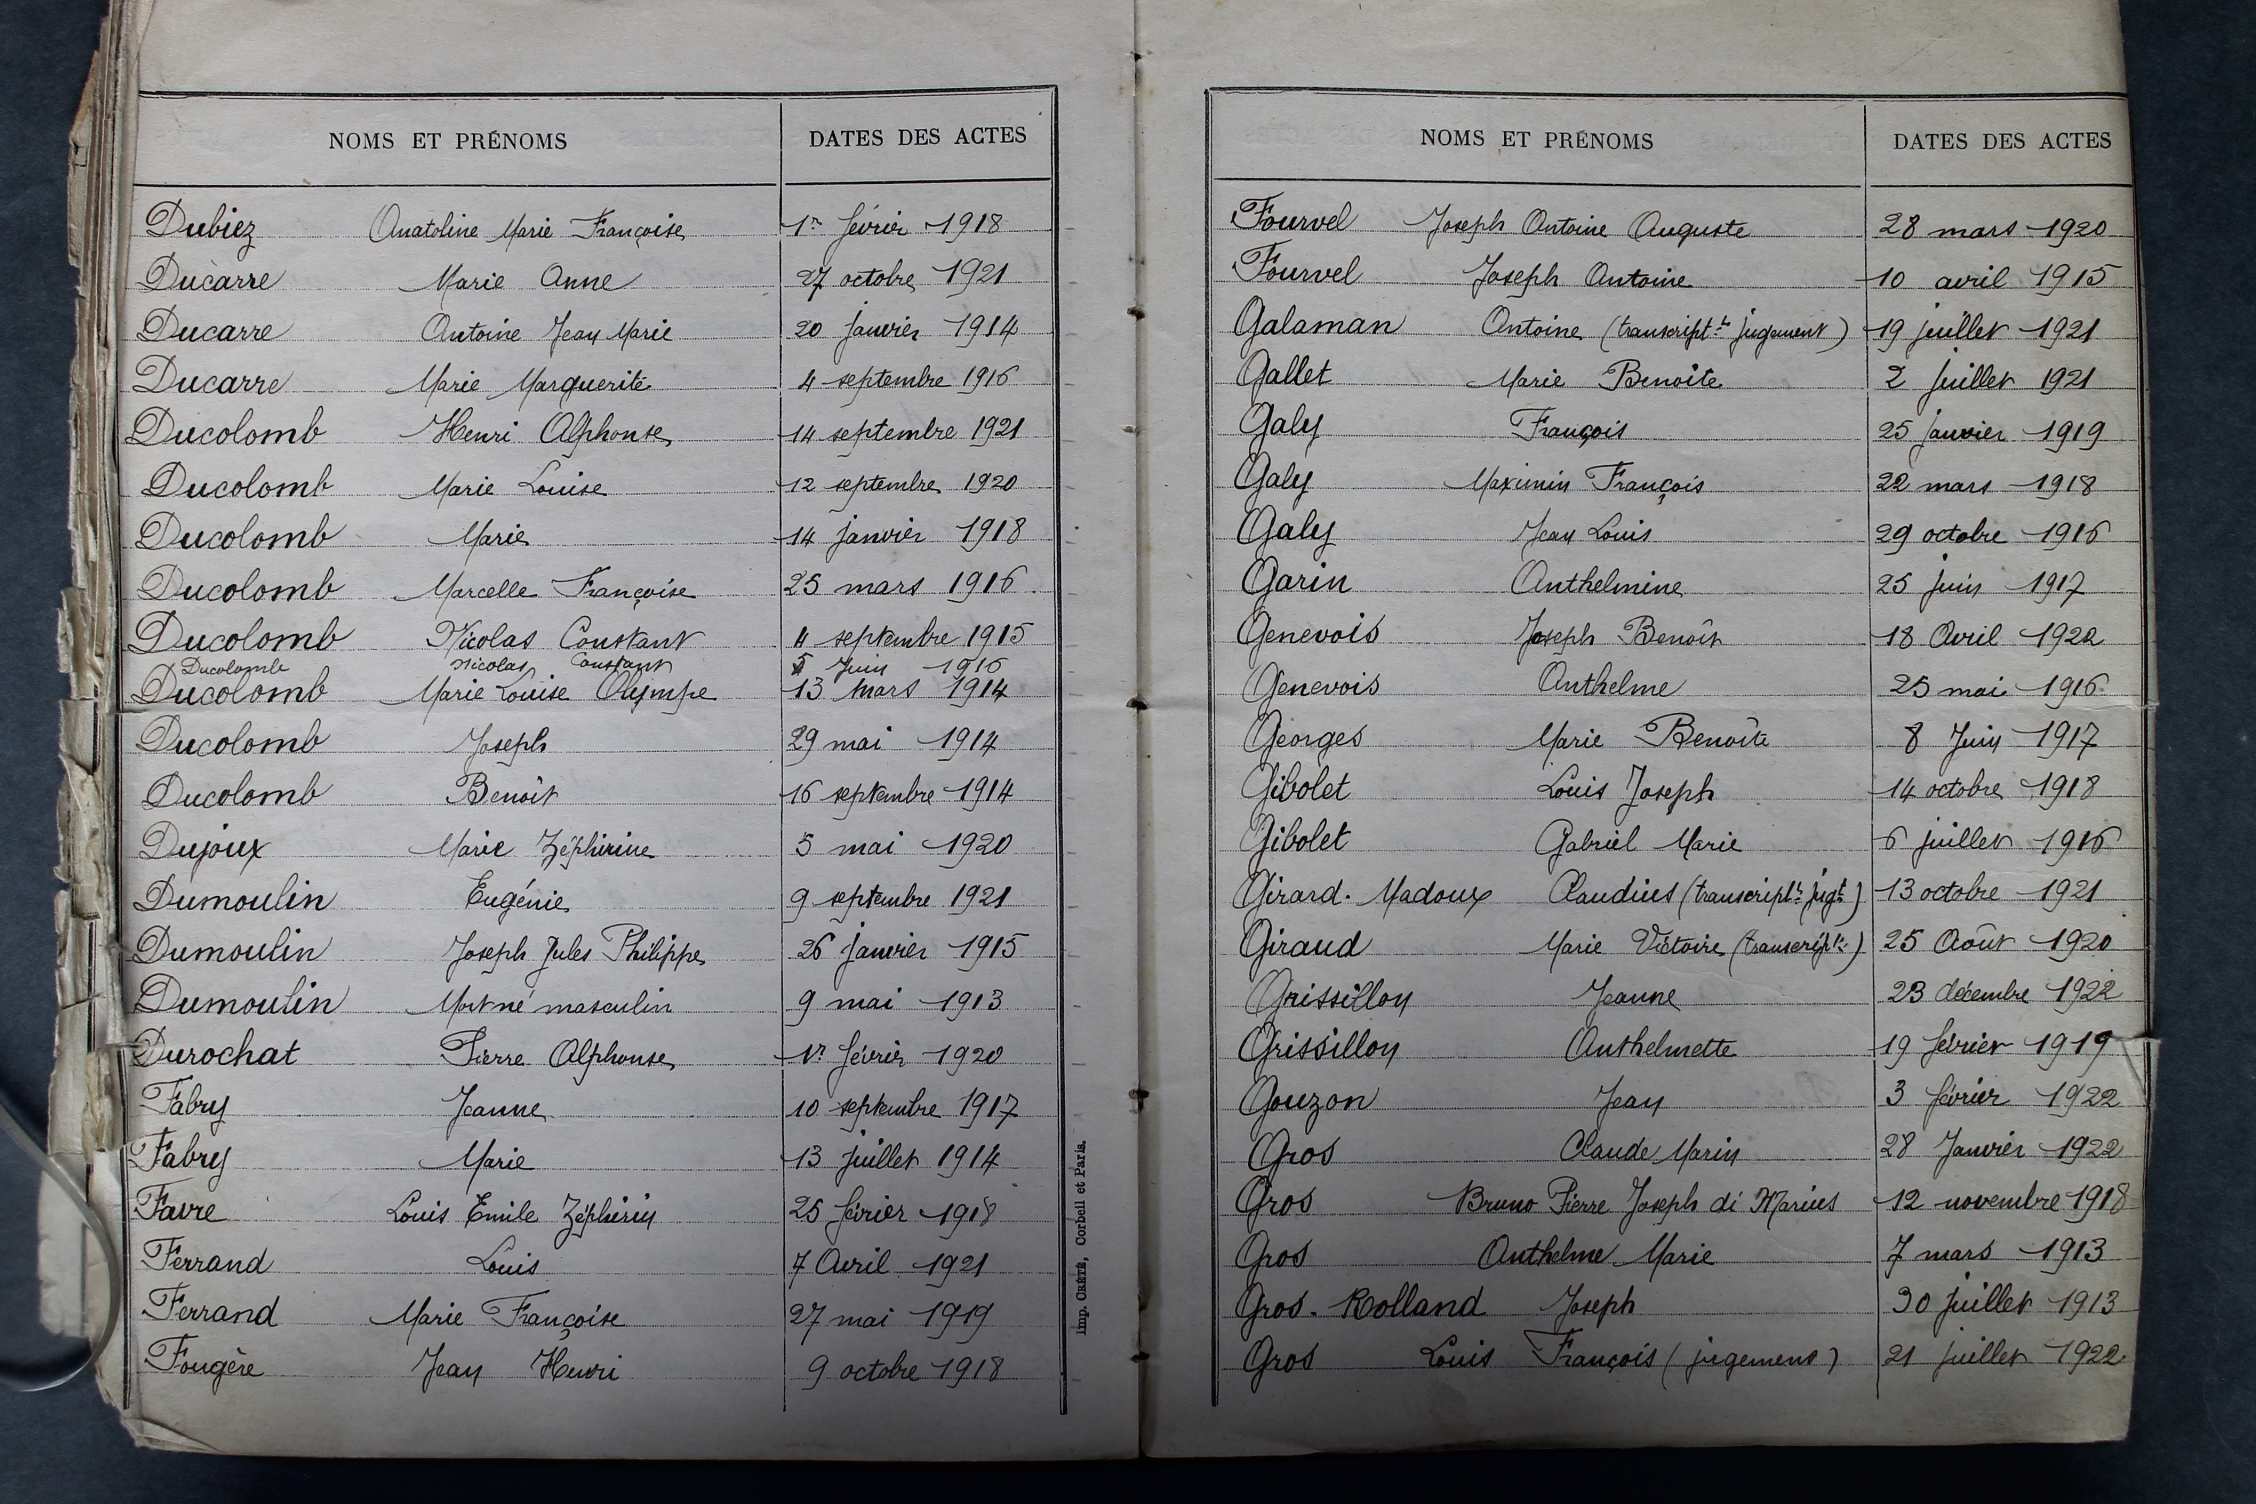 NOMS ET PRÉNOMS DATES DES ACTES
Dubiez Anatoline Marie Françoise 1er février 1918
Ducarre Marie Anne 27 octobre 1921
Ducarre Antoine Jean Marie 20 janvier 1914
Ducarre Marie Marguerite 4 septembre 1916
Ducolomb Henri Alphonse 14 septembre 1921
Ducolomb Marie Louise 12 septembre 1920
Ducolomb Marie 14 janvier 1918
Ducolomb Marcelle Françoise 25 mars 1916
Ducolomb Nicolas Constant 4 septembre 1915
Ducolomb Nicolas Constant 5 Juin 1916
Ducolomb Marie Louise Olympe 13 Mars 1914
Ducolomb Joseph 29 mai 1914
Ducolomb Benoît 16 septembre 1914
Dujoux Marie Zéphirine 5 mai 1920
Dumoulin Eugénie 9 septembre 1921
Dumoulin Joseph Jules Philippe 26 janvier 1915
Dumoulin Mort né masculin 9 mai 1913
Durochat Pierre Alphonse 1er février 1920
Fabry Jeanne 10 septembre 1917
Fabry Marie 13 juillet 1914
Favre Louis Emile Zéphirin 25 février 1918
Ferrand Louis 7 Avril 1921
Ferrand Marie Françoise 27 mai 1919
Fougère Jean Henri 9 octobre 1918
Imp. CRÉTÉ, Corbeil et Paris.
NOMS ET PRÉNOMS DATES DES ACTES
Fourvel Joseph Antoine Auguste 28 mars 1920
Fourvel Joseph Antoine 10 avril 1915
Galaman Antoine (transcript.n jugement) 19 juillet 1921
Gallet Marie Benoîte 2 juillet 1921
Galy François 25 janvier 1919
Galy Maximin François 22 mars 1918
Galy Jean Louis 29 octobre 1916
Garin Anthelmine 25 juin 1917
Genevois Joseph Benoît 18 Avril 1922
Genevois Anthelme 25 mai 1916
Georges Marie Benoîte 8 Juin 1917
Gibolet Louis Joseph 14 octobre 1918
Gibolet Gabriel Marie 6 juillet 1916
Girard-Madoux Claudius (transcript.n jugt) 13 octobre 1921
Giraud Marie Victoire (transcript.n) 25 Août 1920
Grissillon Jeanne 23 décembre 1922
Grissillon Anthelmette 19 février 1919
Gouzon Jean 3 février 1922
Gros Claude Marin 28 Janvier 1922
Gros Bruno Pierre Joseph di Marius 12 novembre 1918
Gros Anthelme Marie 7 mars 1913
Gros-Rolland Joseph 30 juillet 1913
Gros Louis François (jugement) 21 juillet 1922